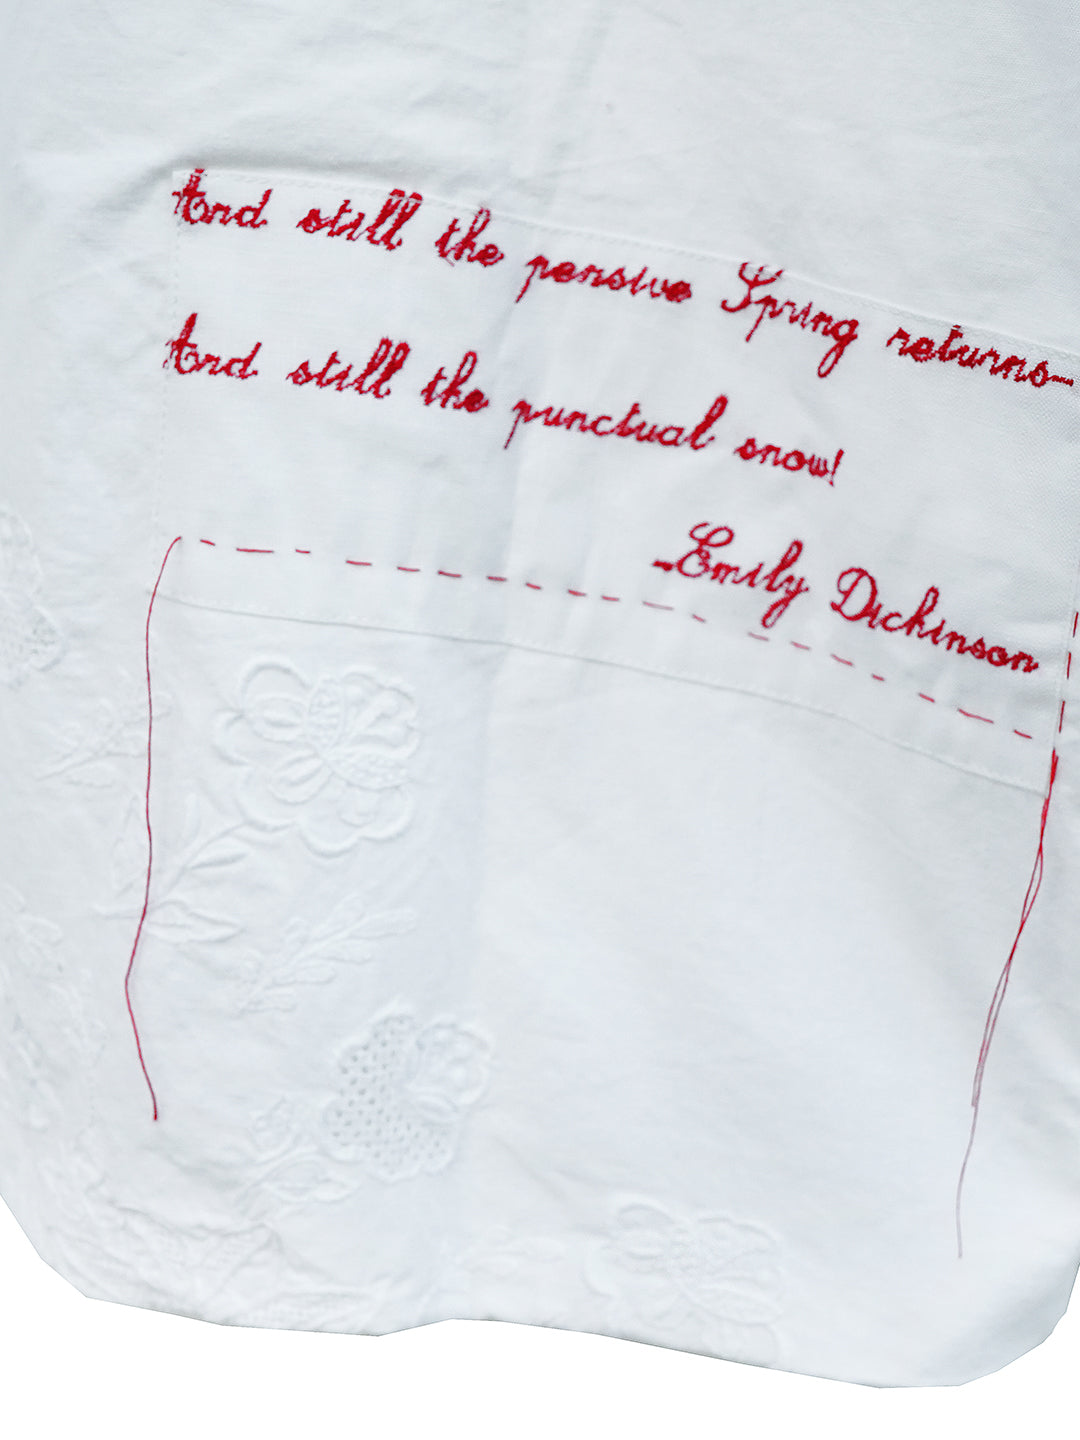 And still the pensive Spring returns—
And still the punctual snow!
-Emily Dickinson